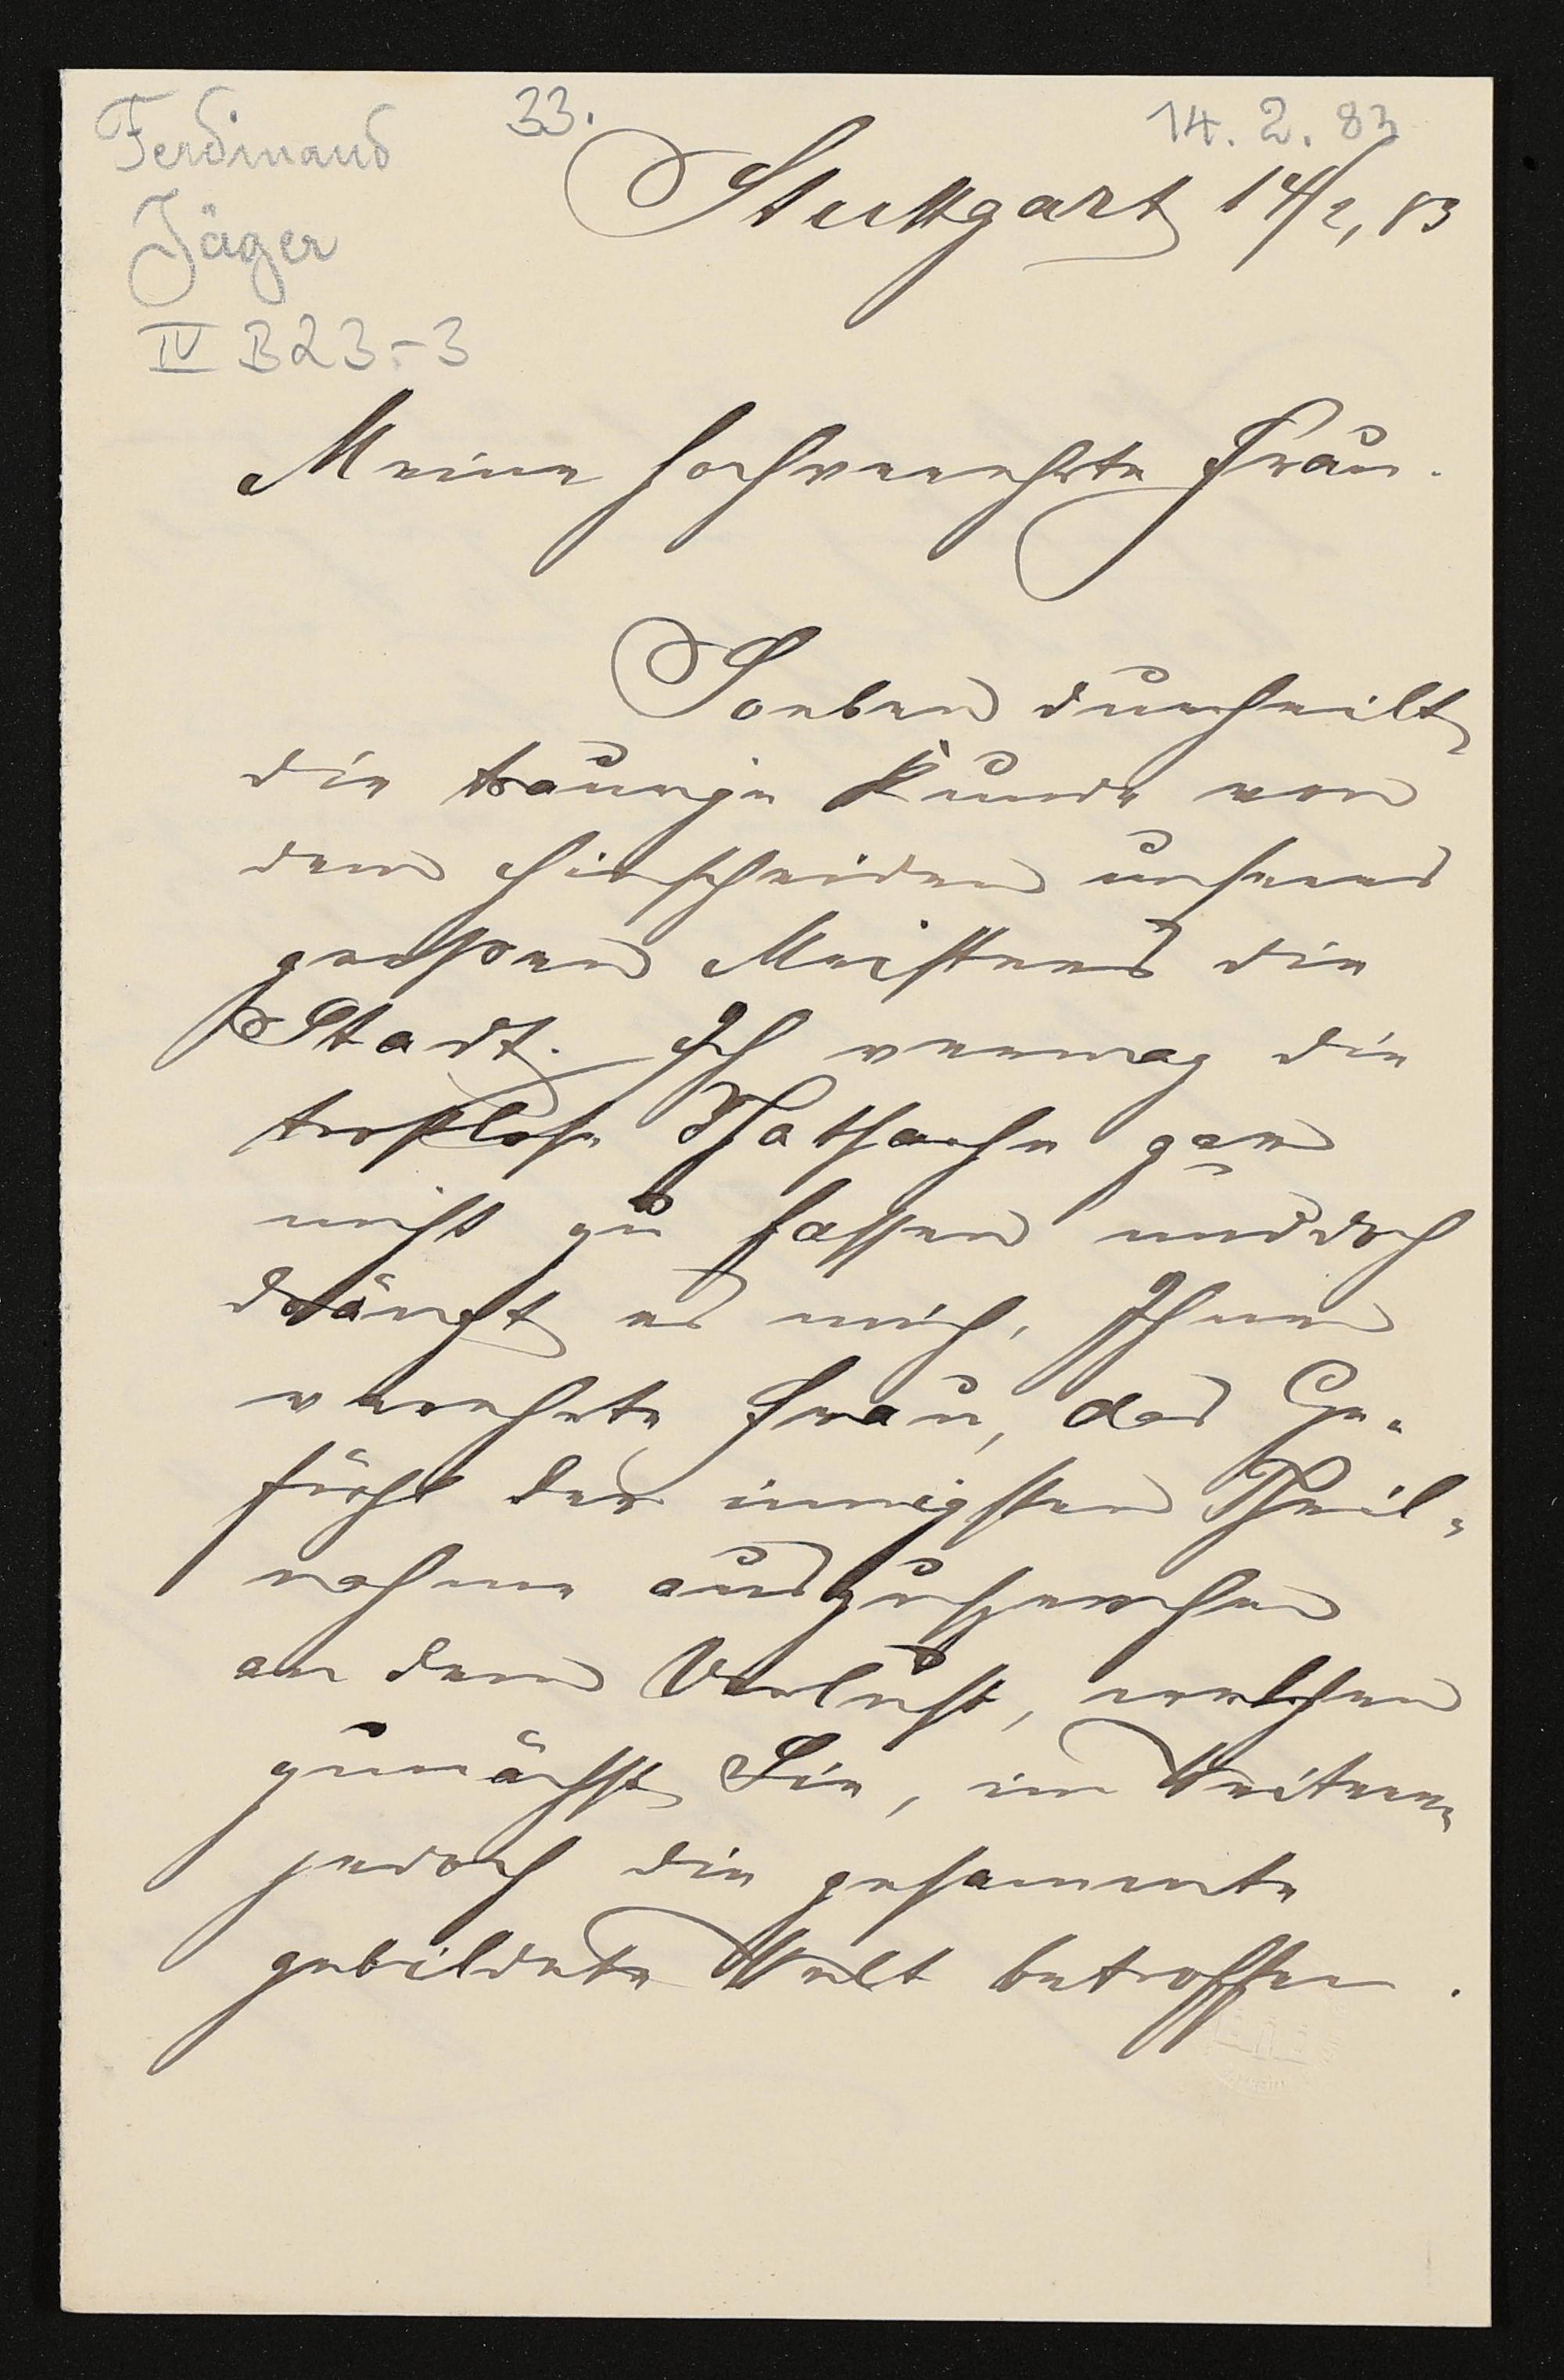 Ferdinand 33. 14. 2. 83
Jäger
IV B23-3
Stuttgart 14/2, 83
Meine hochverehrte Frau.
Soeben durcheilt
die traurige Kunde von
dem Hinscheiden unseres
großen Meisters die
Stadt. Ich vermag die
trostlose Thatsache gar
nicht zu fassen und doch
drängt es mich, Ihnen
verehrte Frau, das Ge-
fühl der innigsten Theil-
nahme auszusprechen
an dem Verlust, welchen
zunächst Sie, im Weiteren
jedoch die gesammte
gebildete Welt betroffen.